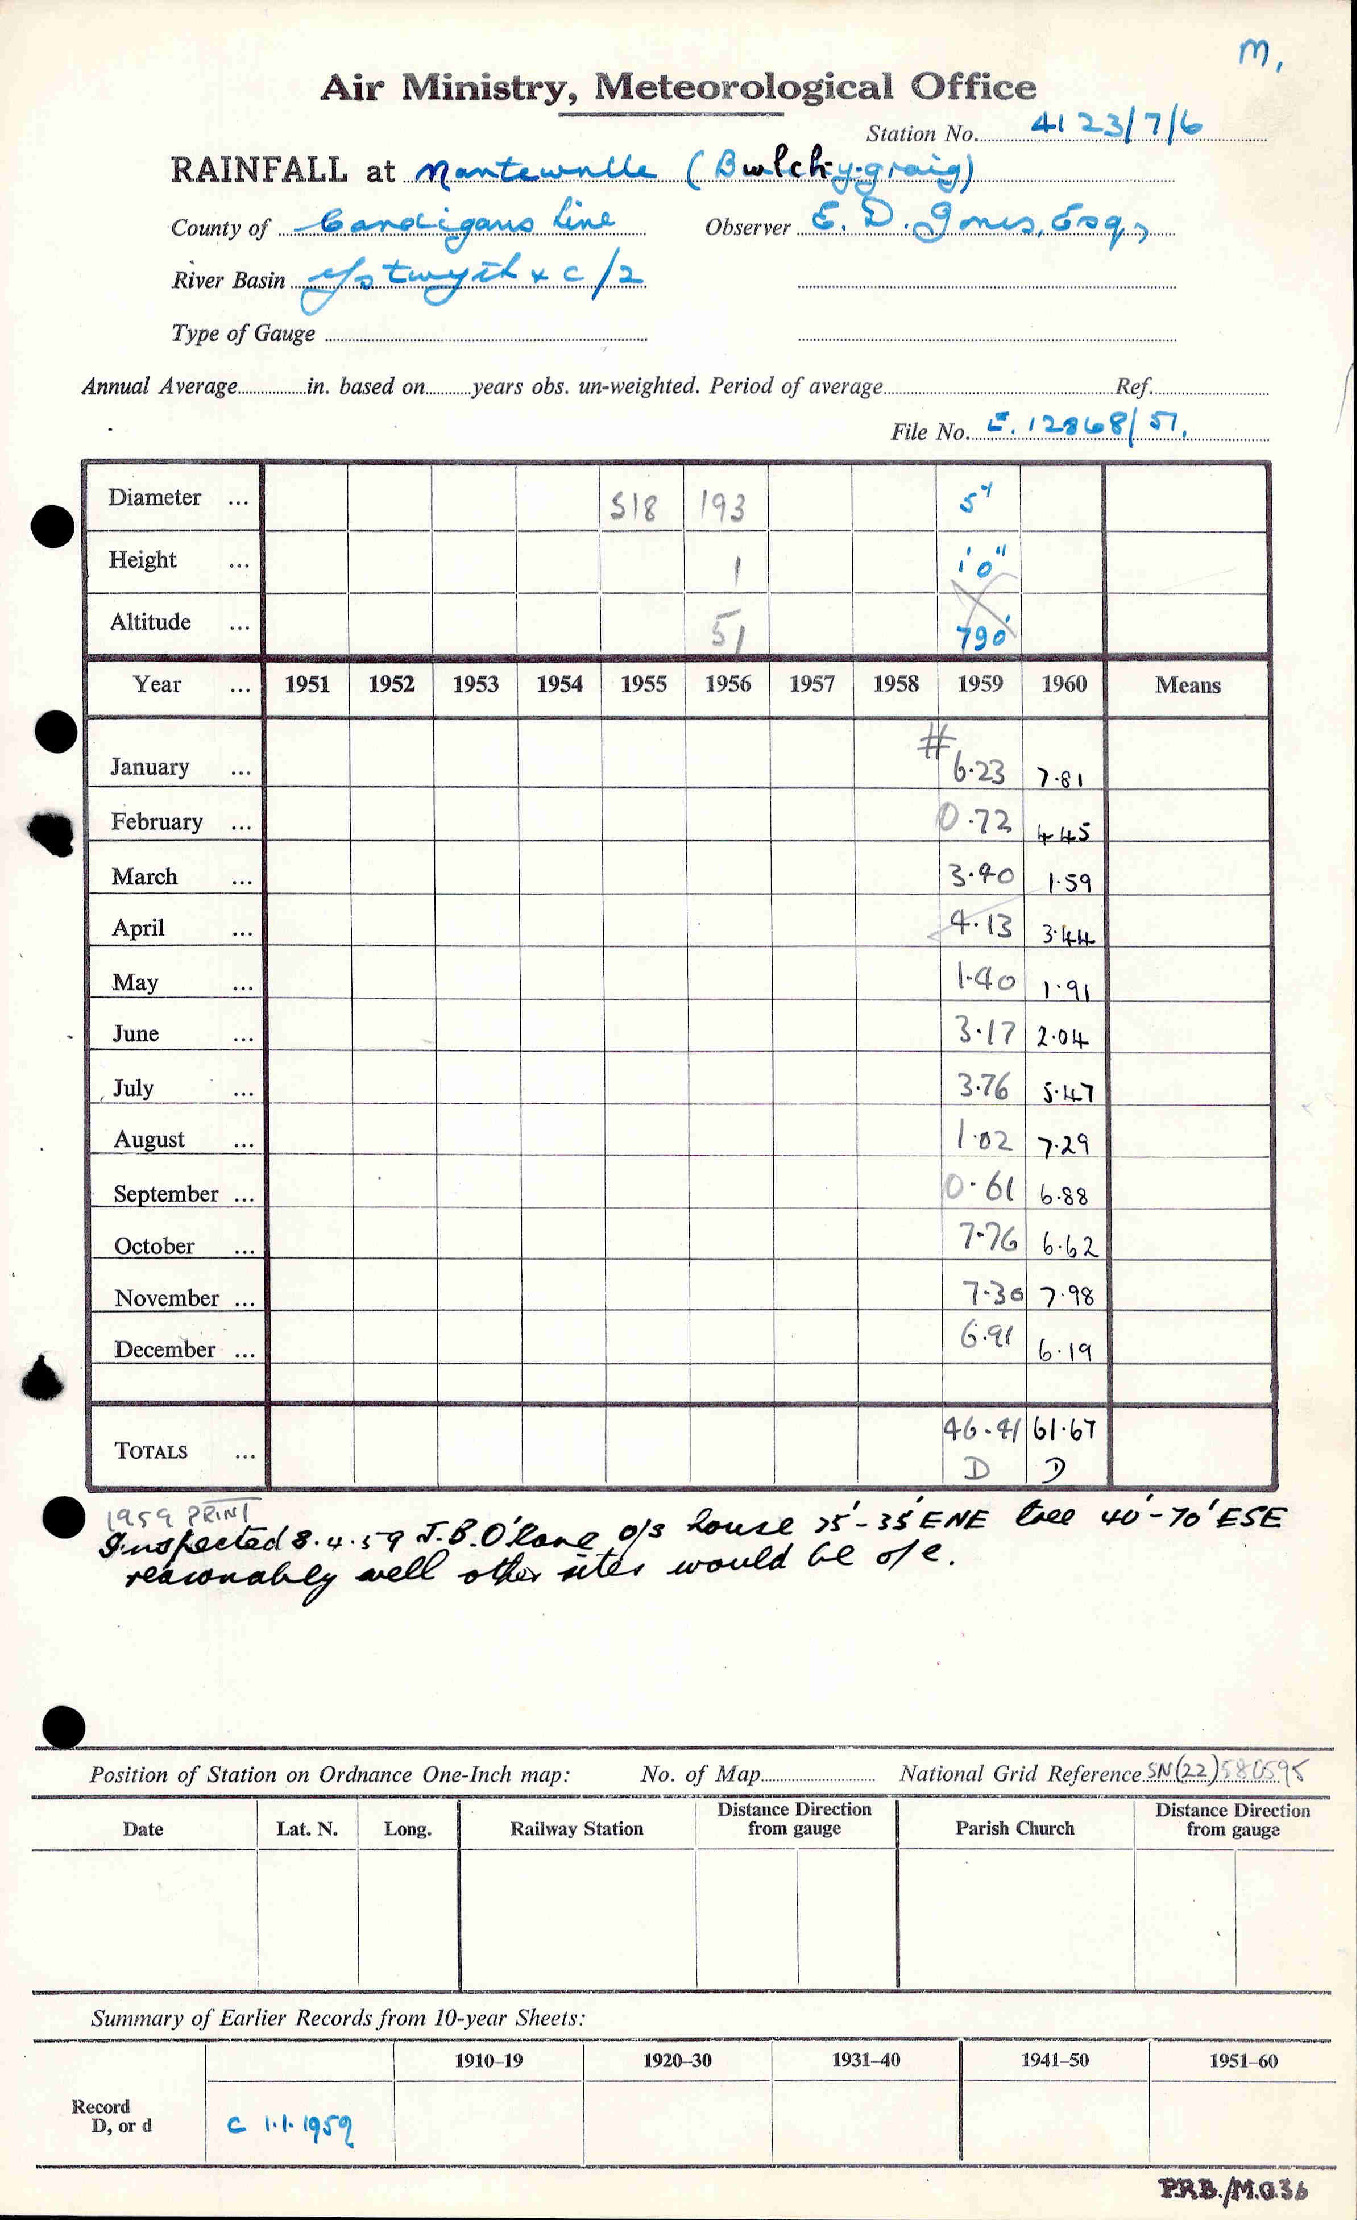 M.
Air Ministry, Meteorological Office
Station No. 4123/7/6
RAINFALL at Nantcwnlle (Bwlch-y-graig)
County of Cardigans hire Observer E. D. Jones, Esq.,
River Basin Ystwyth & C/2
Type of Gauge
Annual Average in. based on years obs. un-weighted. Period of average Ref.
File No. E. 12868/57.
Diameter ... 518 193 5"
Height ... 1 1'0"
Altitude ... 51 790'
Year ... 1951 1952 1953 1954 1955 1956 1957 1958 1959 1960 Means
#
January ... 6.23 7.81
February ... 0.72 4.45
March ... 3.40 1.59
April ... 4.13 3.44
May ... 1.40 1.91
June ... 3.17 2.04
July ... 3.76 5.47
August ... 1.02 7.29
September ... 0.61 6.88
October ... 7.76 6.62
November ... 7.30 7.98
December ... 6.91 6.19
TOTALS ... 46.41 61.67
D D
1959 PRINT
Inspected 8.4.59 J.B. o/s house 25'-35' ENE tree 40'-70' ESE
reasonably well other sites would be o/e.
Position of Station on Ordnance One-Inch map: No. of Map National Grid Reference SN(22)580595
Date Lat. N. Long. Railway Station Distance Direction from gauge Parish Church Distance Direction from gauge
Summary of Earlier Records from 10-year Sheets:
1910-19 1920-30 1931-40 1941-50 1951-60
Record
D, or d C 1.1.1959
P.R.B./M.O.36